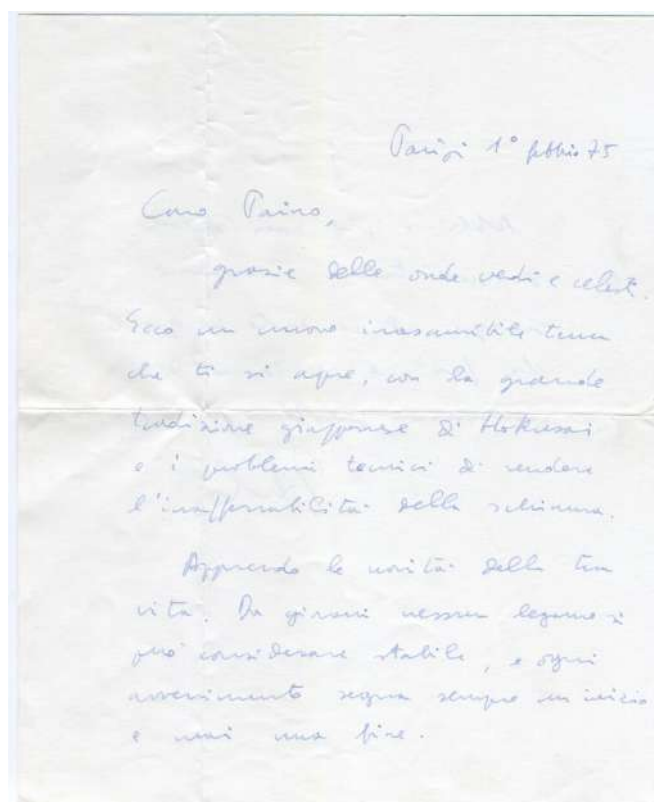 Parigi 1° febbraio 75
Caro Paino,
grazie delle onde verdi e celesti.
Ecco un nuovo inesauribile tema
che ti si apre, con la grande
tradizione giapponese di Hokusai
e i problemi tecnici di rendere
l'inafferrabilità della schiuma.
Apprendo le novità della tua
vita. Da giovani nessun legame si
può considerare stabile, e ogni
avvenimento segna sempre un inizio
e mai una fine.